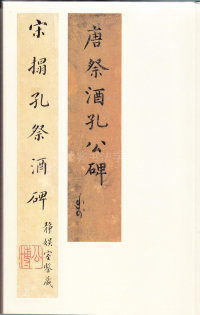 唐祭酒孔公碑
宋搨孔祭酒碑
静娱室鉴藏